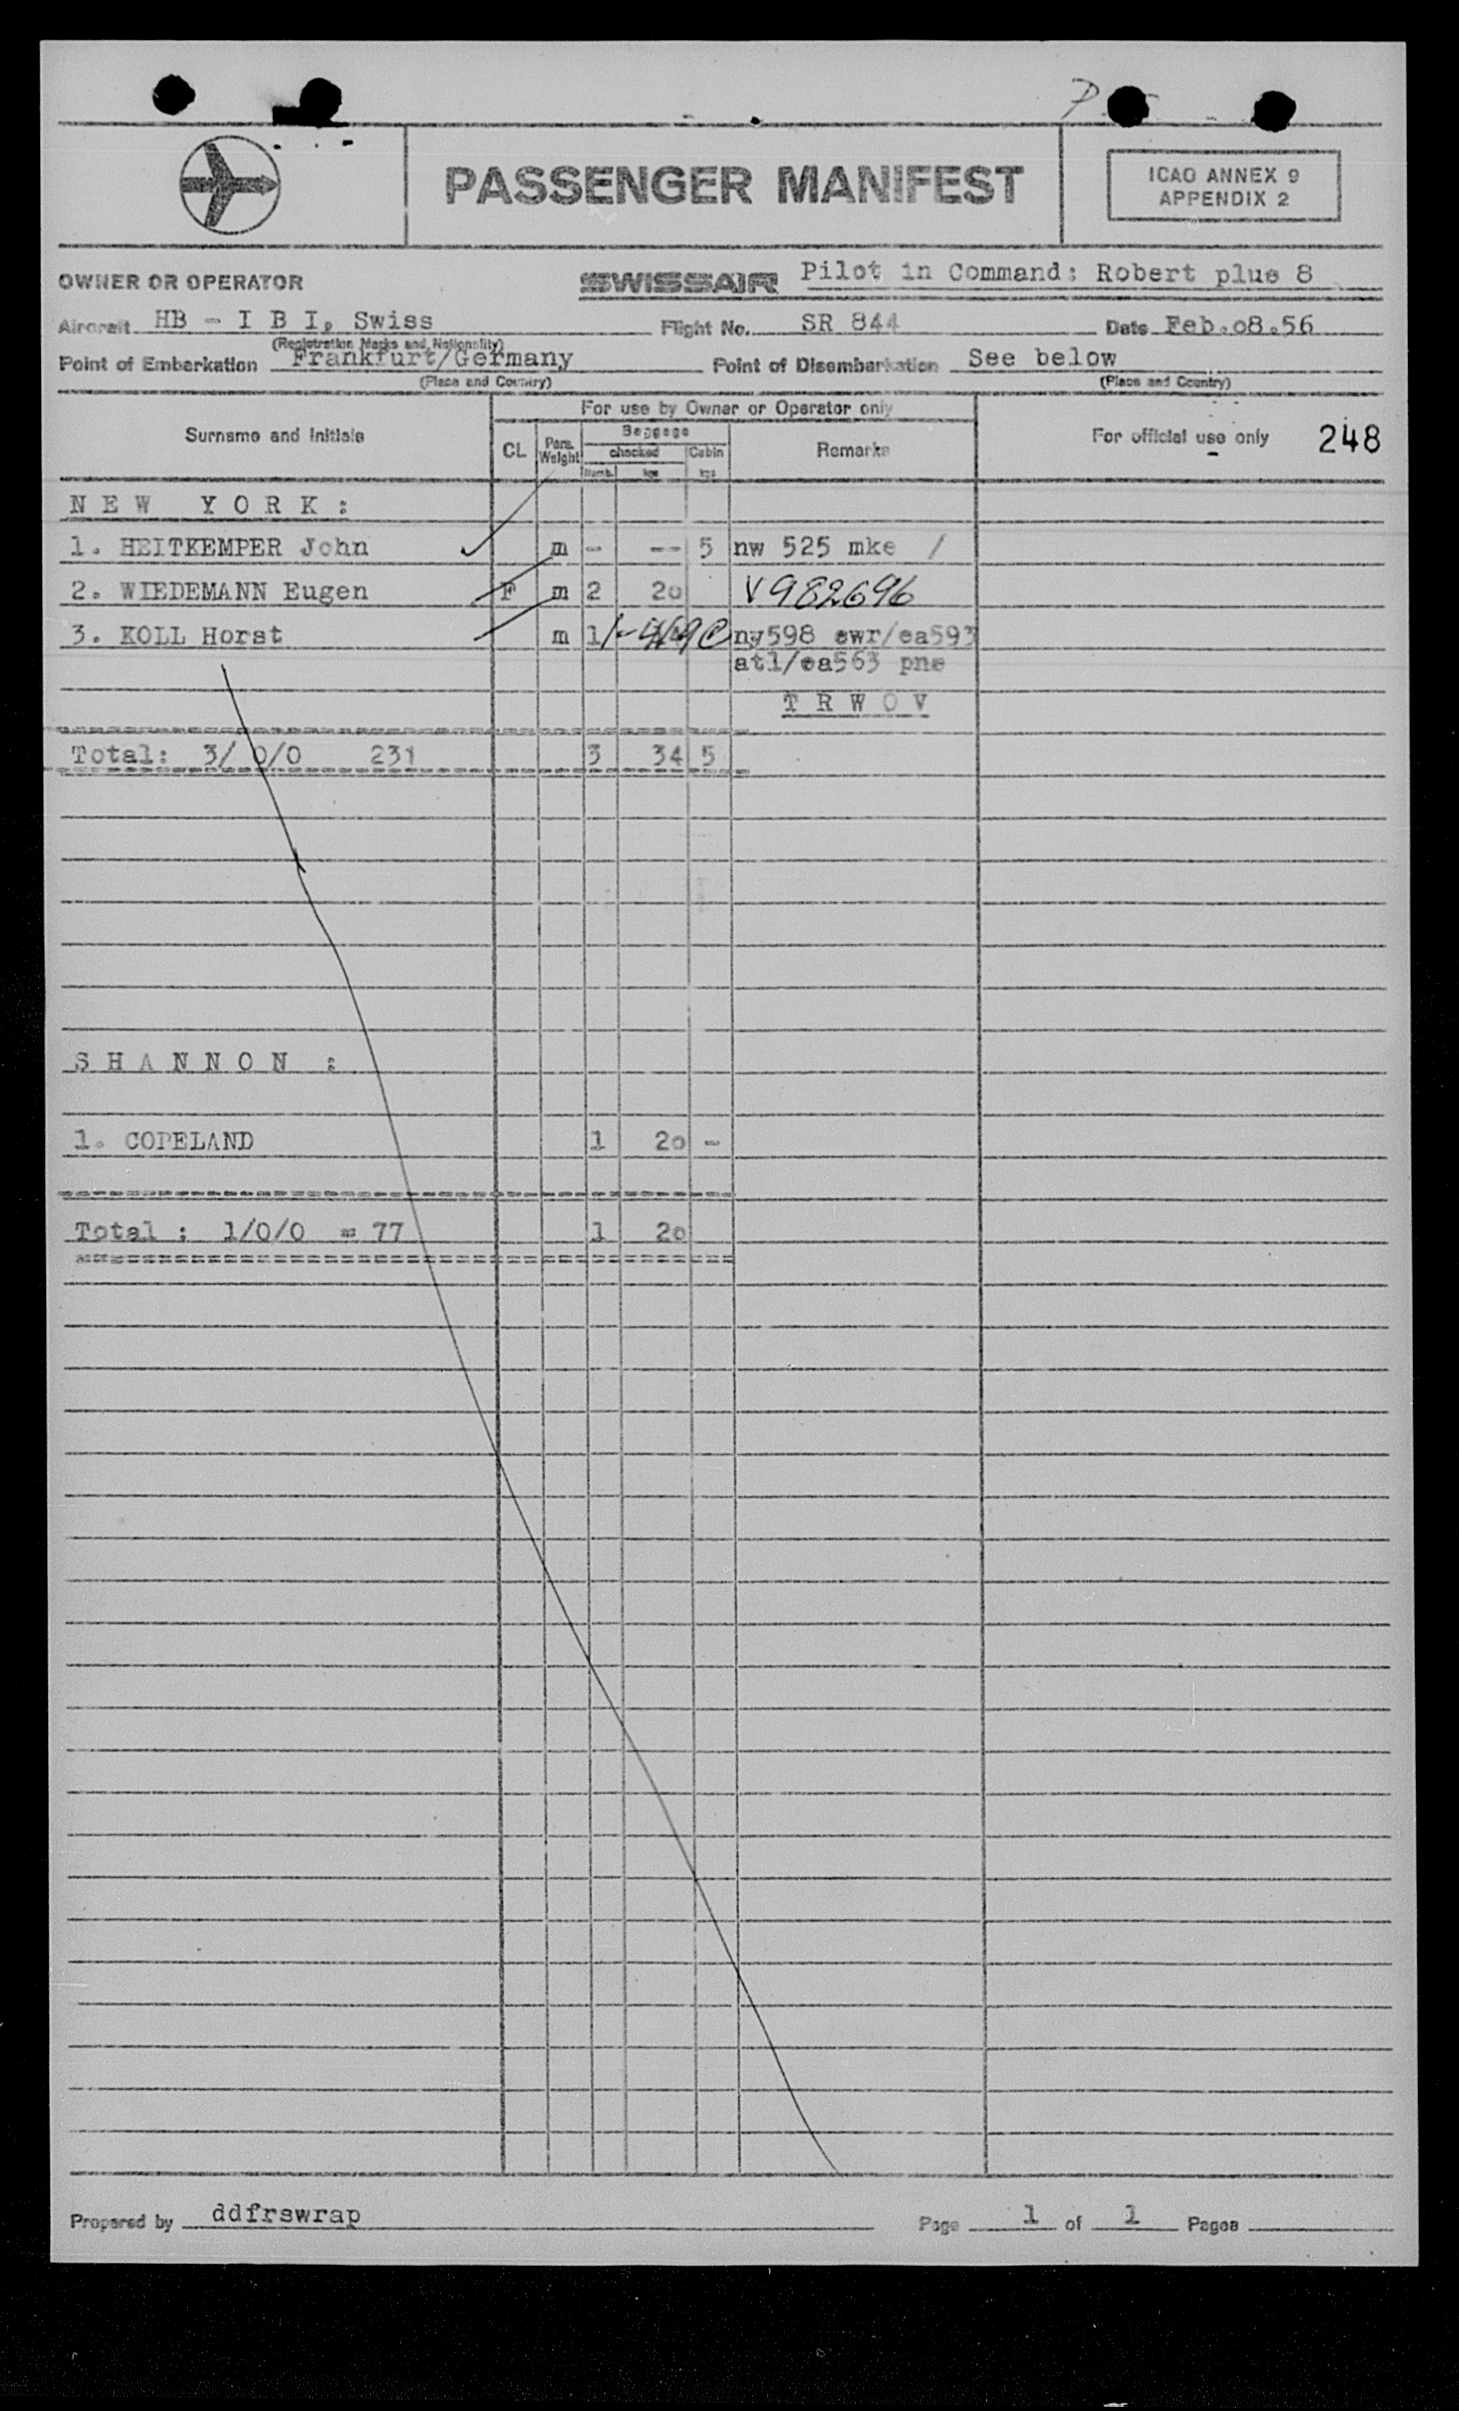 PASSENGER MANIFEST
ICAO ANNEX 9
APPENDIX 2
OWNER OR OPERATOR SWISSAIR Pilot in Command: Robert plus 8
Aircraft HB - I B I, Swiss Flight No. SR 844 Date Feb.o8.56
(Registration Marks and Nationality)
Point of Embarkation Frankfurt/Germany Point of Disembarkation See below
(Place and Country) (Place and Country)
For use by Owner or Operator only
Surname and Initials CL Pass. Weight Baggage checked Cabin Remarks For official use only 248
Numb. kgs kgs
N E W Y O R K :
1. HEITKEMPER John m - -- 5 nw 525 mke /
2. WIEDEMANN Eugen F m 2 2o V982696
3. KOLL Horst m 1 ny598 ewr/ea593
atl/ea563 pns
T R W O V
Total: 3/ 0/0 231 3 34 5
S H A N N O N :
1. COPELAND 1 2o -
Total : 1/0/0 = 77 1 2o
Prepared by ddfrswrap Page 1 of 1 Pages